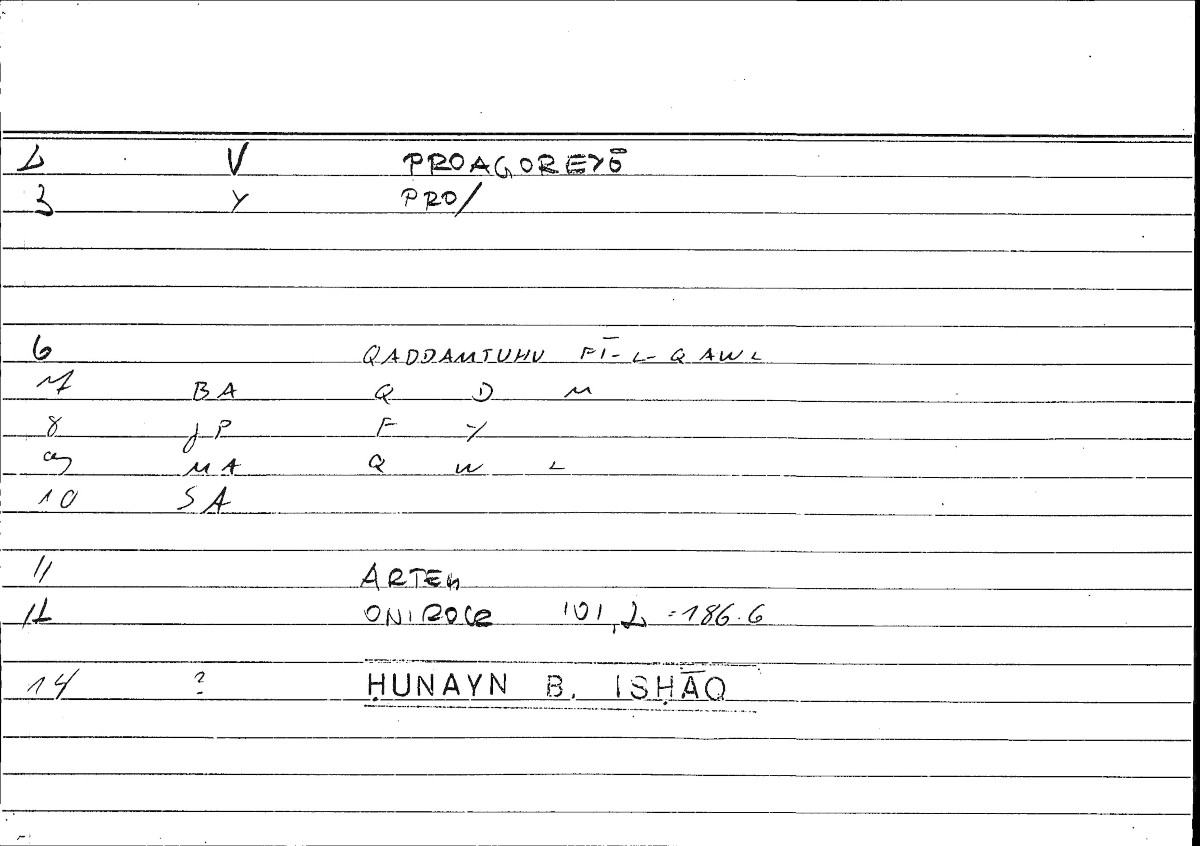 2 V PROAGOREYŌ
3 Y PRO/
6 QADDAMTUHU FĪ-L-QAWL
7 BA Q D M
8 JP F Y
9 MA Q W L
10 SA
11 ARTEM
12 ONIROCR 101,2 =186.6
14 ? ḤUNAYN B. ISḤĀQ